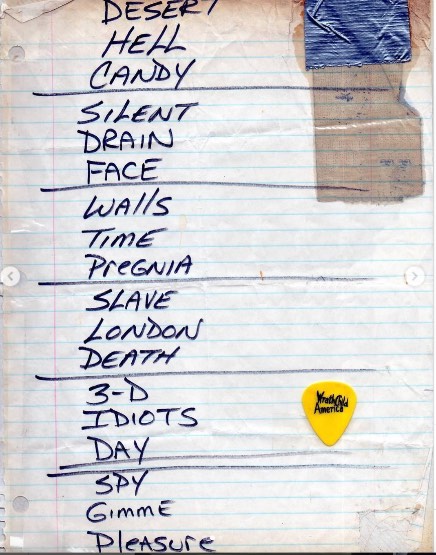 DESERT
HELL
CANDY
SILENT
DRAIN
FACE
WAlls
TIME
PreGNIA
SLAVE
LONDON
DEATH
3-D
IDIOTS
DAY
Wrathchild
America
SPY
GimmE
Pleasure